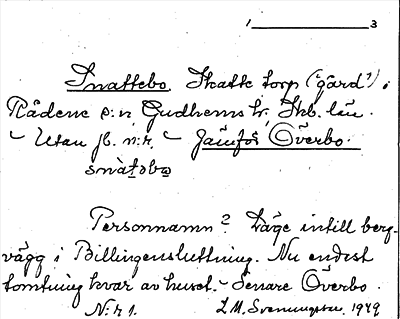 1 3
Snattebo. Skatte torp ("gård") i
Rådene s:n, Gudhems h., Skb. län.
– Utan jb. n:r. – Jämför Överbo.
snàtəbo
Personnamn? Läge intill berg-
vägg i Billingensluttning. Nu endast
tomtning kvar av huset. – Senare Överbo.
N:r 1. 1949